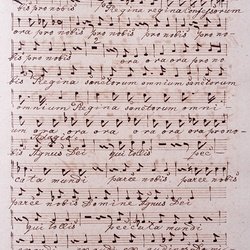 bis pro nobis Regina regina Confessorum
ora pro nobis pro nobis pro no-
bis Regina sanctorum omnium sanctorum
omnium Regina sanctorum omni
um ora ora ora ora pro no
bis Agnus Dei qui tollis pec
cata mundi parce nobis
parce nobis Domine Agnus Dei
qui tollis peccata mundi